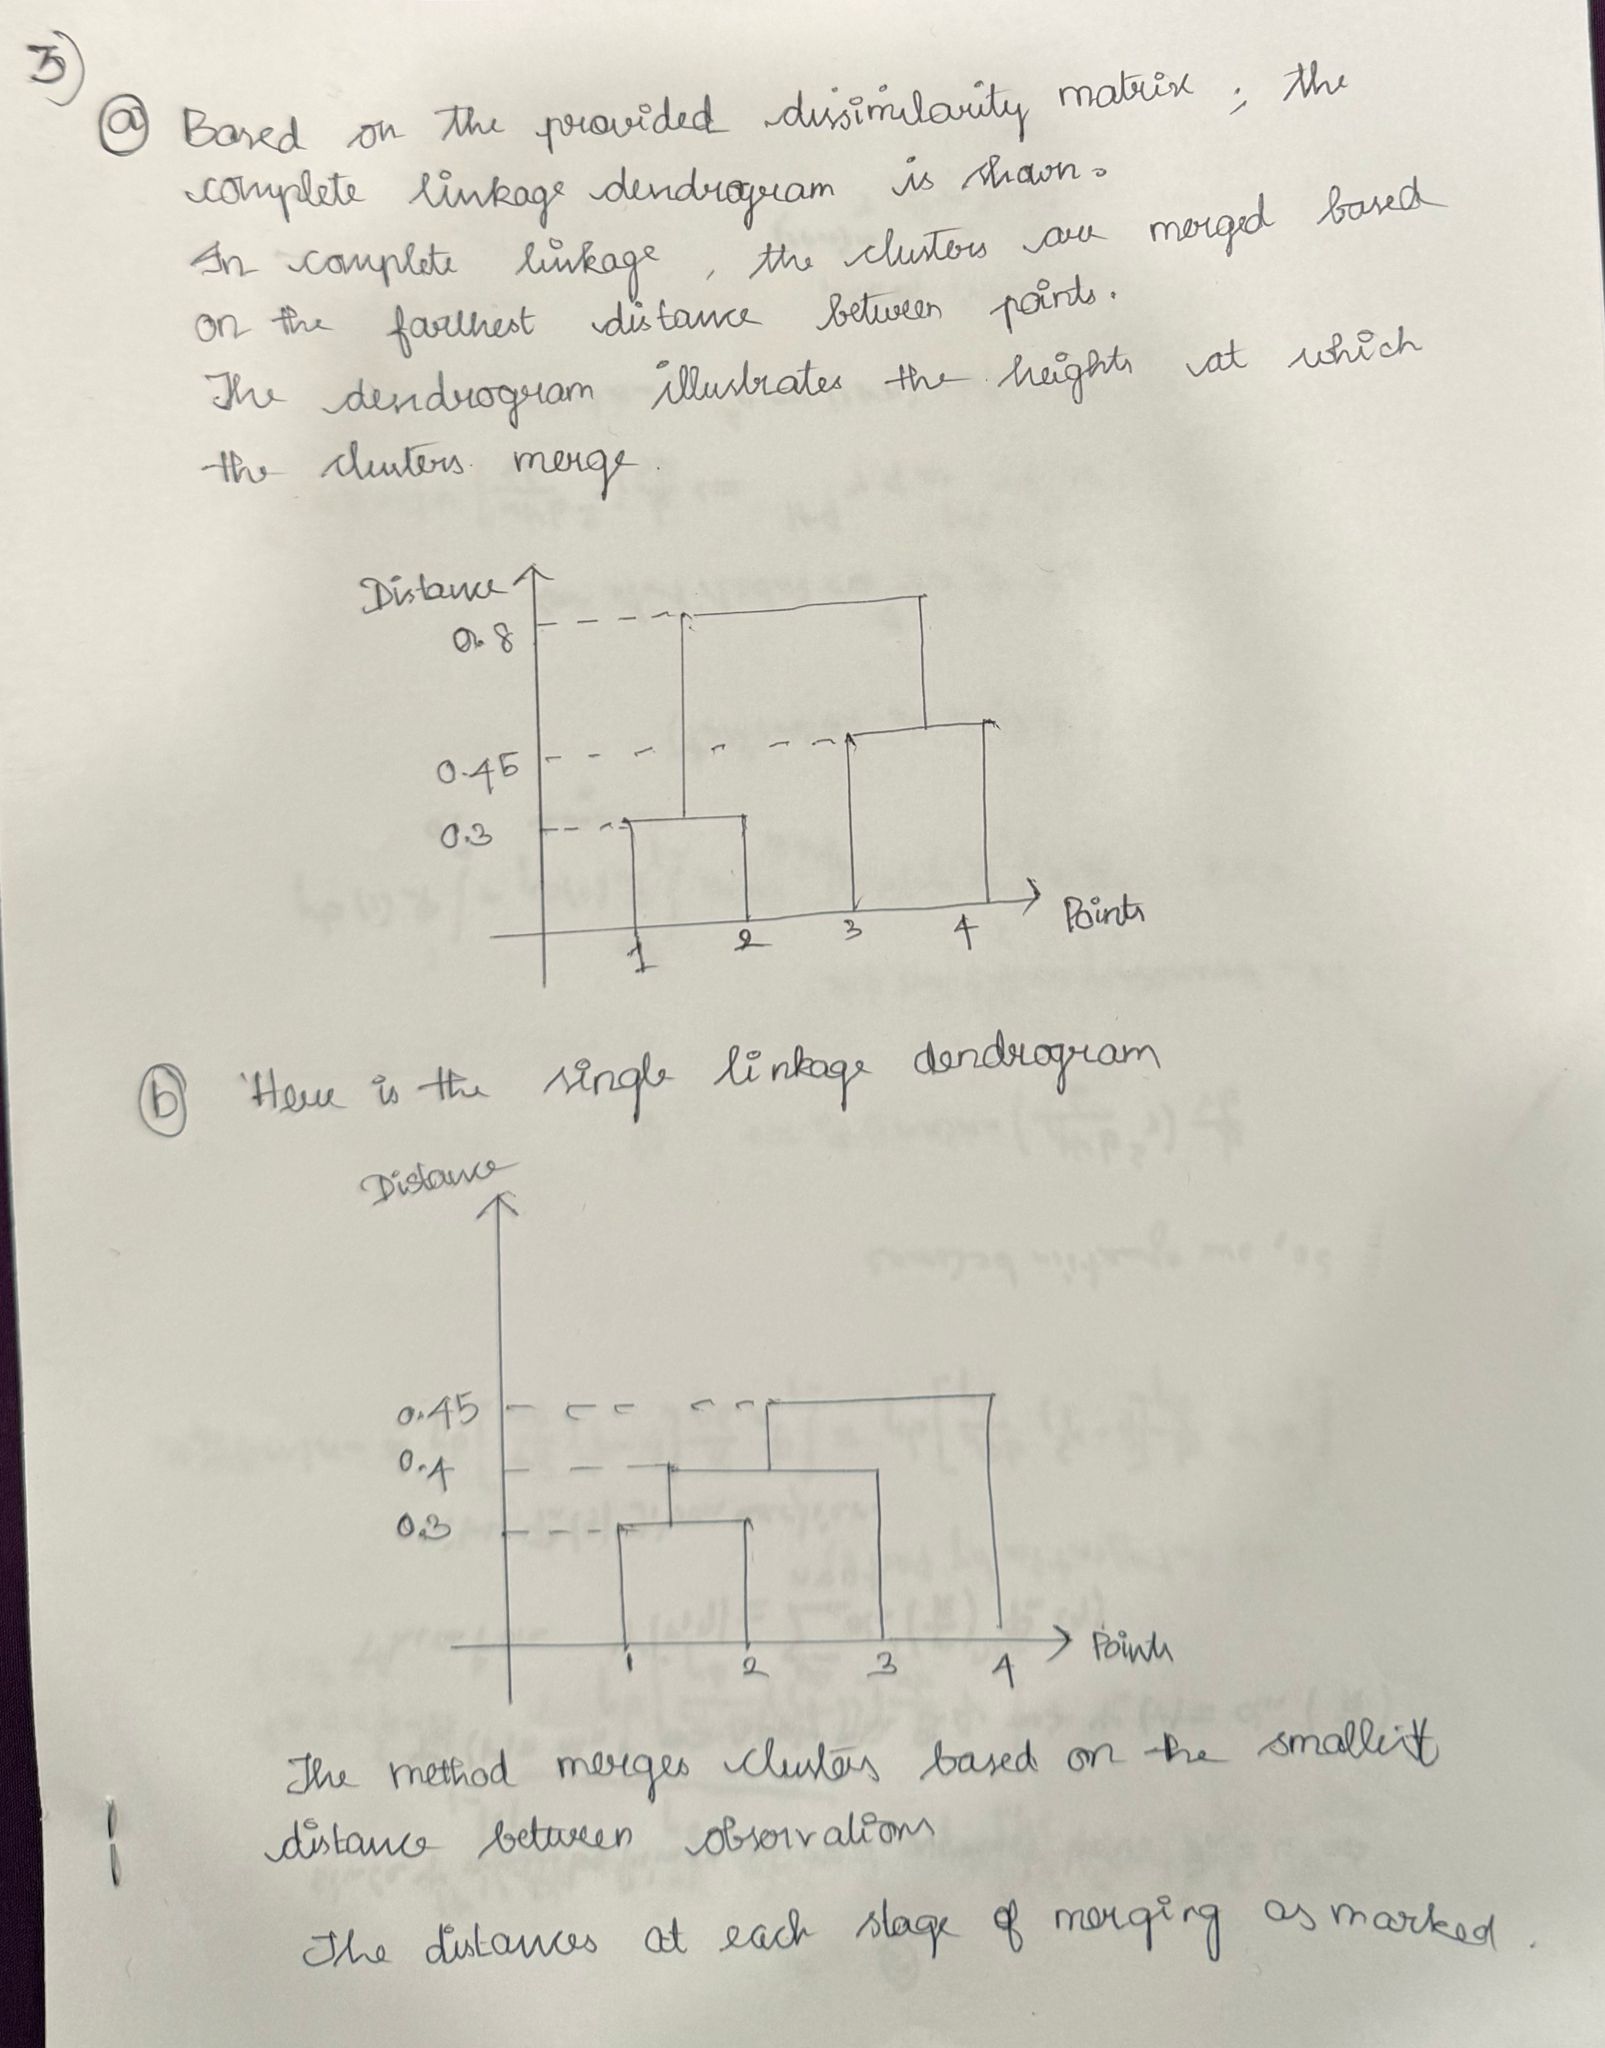 3)
ⓐ Based on the provided dissimilarity matrix ; the
complete linkage dendrogram is shown.
In complete linkage , the clusters are merged based
on the farthest distance between points.
The dendrogram illustrates the heights at which
the clusters merge.
Distance
0.8
0.45
0.3
1 2 3 4 Points
ⓑ Here is the single linkage dendrogram
Distance
0.45
0.4
0.3
1 2 3 4 Points
The method merges clusters based on the smallest
distance between observations
The distances at each stage of merging as marked.